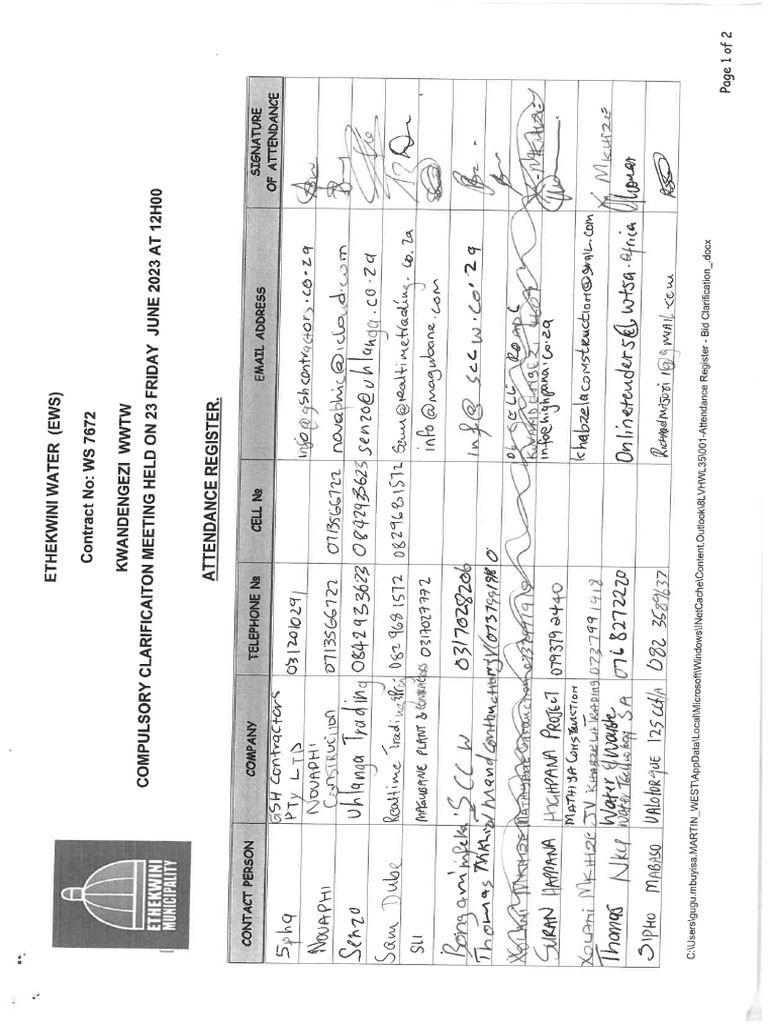 ETHEKWINI MUNICIPALITY
ETHEKWINI WATER (EWS)
Contract No: WS 7672
KWANDENGEZI WWTW
COMPULSORY CLARIFICAITON MEETING HELD ON 23 FRIDAY JUNE 2023 AT 12H00
ATTENDANCE REGISTER.
CONTACT PERSON COMPANY TELEPHONE № CELL № EMAIL ADDRESS SIGNATURE OF ATTENDANCE
Spha GSH Contractors PTY LTD 0312010291 info@gshcontractors.co.za
NOVAPHI NOVAPHI CONSTRUCTION 0713566722 0713566722 novaphic@icloud.com
Senzo Uhlanga Trading 0842933623 0842933623 senzo@uhlanga.co.za
Sam Dube Realtime Trading 0829681572 0829681572 Sam@realtimetrading.co.za
SLI MAGUBANE PLANT & CONTRACTORS 0317027772 info@magubane.com
Bonganimfeka'SCCW 0317028206 info@sccw.co.za
Thomas Mkhize
SURAN HAPPANA HIGHPANA PROJECT 079379 2440 info@highpana.co.za
XOLANI MKHIZE MATHIYA CONSTRUCTION JV KHABZELA TRADING 0737991918 khabzelaconstruction@gmail.com X. MKHIZE
Thomas Nky Water & Waste Water Technology SA 0768272220 Onlinetenders@wtsa.africa Thomas
SIPHO MABASO VALOTORQUE 125 CC 082 3589637
C:\Users\gugu.mbuyisa.MARTIN_WEST\AppData\Local\Microsoft\Windows\INetCache\Content.Outlook\8LVHWL35\001-Attendance Register - Bid Clarification_.docx
Page 1 of 2